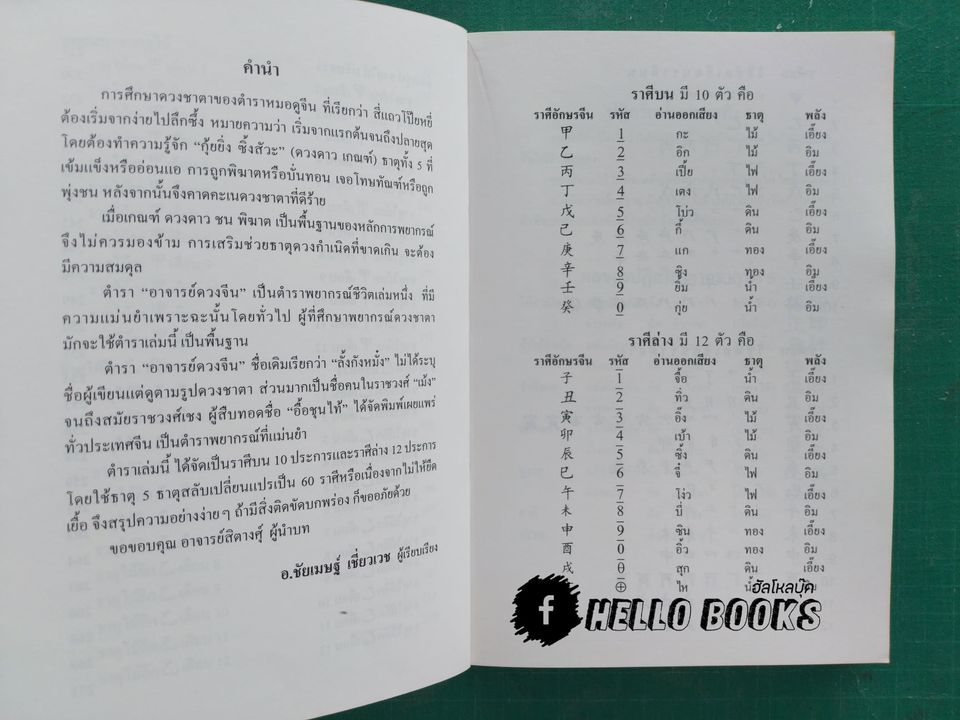 คำนำ
การศึกษาดวงชาตาของตำราหมอดูจีน ที่เรียกว่า สี่แถวโป๊ยหยี่
ต้องเริ่มจากง่ายไปลึกซึ้ง หมายความว่า เริ่มจากแรกต้นจนถึงปลายสุด
โดยต้องทำความรู้จัก “กุ้ยยิ่ง ซิ้งสัวะ” (ดวงดาว เกณฑ์) ธาตุทั้ง 5 ที่
เข้มแข็งหรืออ่อนแอ การถูกพิฆาตหรือบั่นทอน เจอโทษทัณฑ์หรือถูก
พุ่งชน หลังจากนั้นจึงคาดคะเนดวงชาตาที่ดีร้าย
เมื่อเกณฑ์ ดวงดาว ชน พิฆาต เป็นพื้นฐานของหลักการพยากรณ์
จึงไม่ควรมองข้าม การเสริมช่วยธาตุดวงกำเนิดที่ขาดเกิน จะต้อง
มีความสมดุล
ตำรา “อาจารย์ดวงจีน” เป็นตำราพยากรณ์ชีวิตเล่มหนึ่ง ที่มี
ความแม่นยำเพราะฉะนั้นโดยทั่วไป ผู้ที่ศึกษาพยากรณ์ดวงชาตา
มักจะใช้ตำราเล่มนี้ เป็นพื้นฐาน
ตำรา “อาจารย์ดวงจีน” ชื่อเดิมเรียกว่า “ลั้งกังหมั่ง” ไม่ได้ระบุ
ชื่อผู้เขียนแต่ดูตามรูปดวงชาตา ส่วนมากเป็นชื่อคนในราชวงศ์ “เม้ง”
จนถึงสมัยราชวงศ์เชง ผู้สืบทอดชื่อ “อื้อชุนไท้” ได้จัดพิมพ์เผยแพร่
ทั่วประเทศจีน เป็นตำราพยากรณ์ที่แม่นยำ
ตำราเล่มนี้ ได้จัดเป็นราศีบน 10 ประการและราศีล่าง 12 ประการ
โดยใช้ธาตุ 5 ธาตุสลับเปลี่ยนแปรเป็น 60 ราศีหรือเนื่องจากไม่ให้ยืด
เยื้อ จึงสรุปความอย่างง่ายๆ ถ้ามีสิ่งติดขัดบกพร่อง ก็ขออภัยด้วย
ขอขอบคุณ อาจารย์สิตางศุ์ ผู้นำบท
อ.ชัยเมษฐ์ เชี่ยวเวช ผู้เรียบเรียง
ราศีบน มี 10 ตัว คือ
ราศีอักษรจีน รหัส อ่านออกเสียง ธาตุ พลัง
甲 1 กะ ไม้ เอี้ยง
乙 2 อิก ไม้ อิม
丙 3 เปี้ย ไฟ เอี้ยง
丁 4 เตง ไฟ อิม
戊 5 โบ่ว ดิน เอี้ยง
己 6 กี้ ดิน อิม
庚 7 แก ทอง เอี้ยง
辛 8 ซิง ทอง อิม
壬 9 ยิ้ม น้ำ เอี้ยง
癸 0 กุ่ย น้ำ อิม
ราศีล่าง มี 12 ตัว คือ
ราศีอักษรจีน รหัส อ่านออกเสียง ธาตุ พลัง
子 1 จื้อ น้ำ เอี้ยง
丑 2 ทิ่ว ดิน อิม
寅 3 อิ๊ง ไม้ เอี้ยง
卯 4 เบ้า ไม้ อิม
辰 5 ซิ้ง ดิน เอี้ยง
巳 6 จี๋ ไฟ อิม
午 7 โง่ว ไฟ เอี้ยง
未 8 บี่ ดิน อิม
申 9 ซิน ทอง เอี้ยง
酉 0 อิ้ว ทอง อิม
戌 θ สุก ดิน เอี้ยง
⊕ ไห
ฮัลโหลบุ๊ค
f HELLO BOOKS